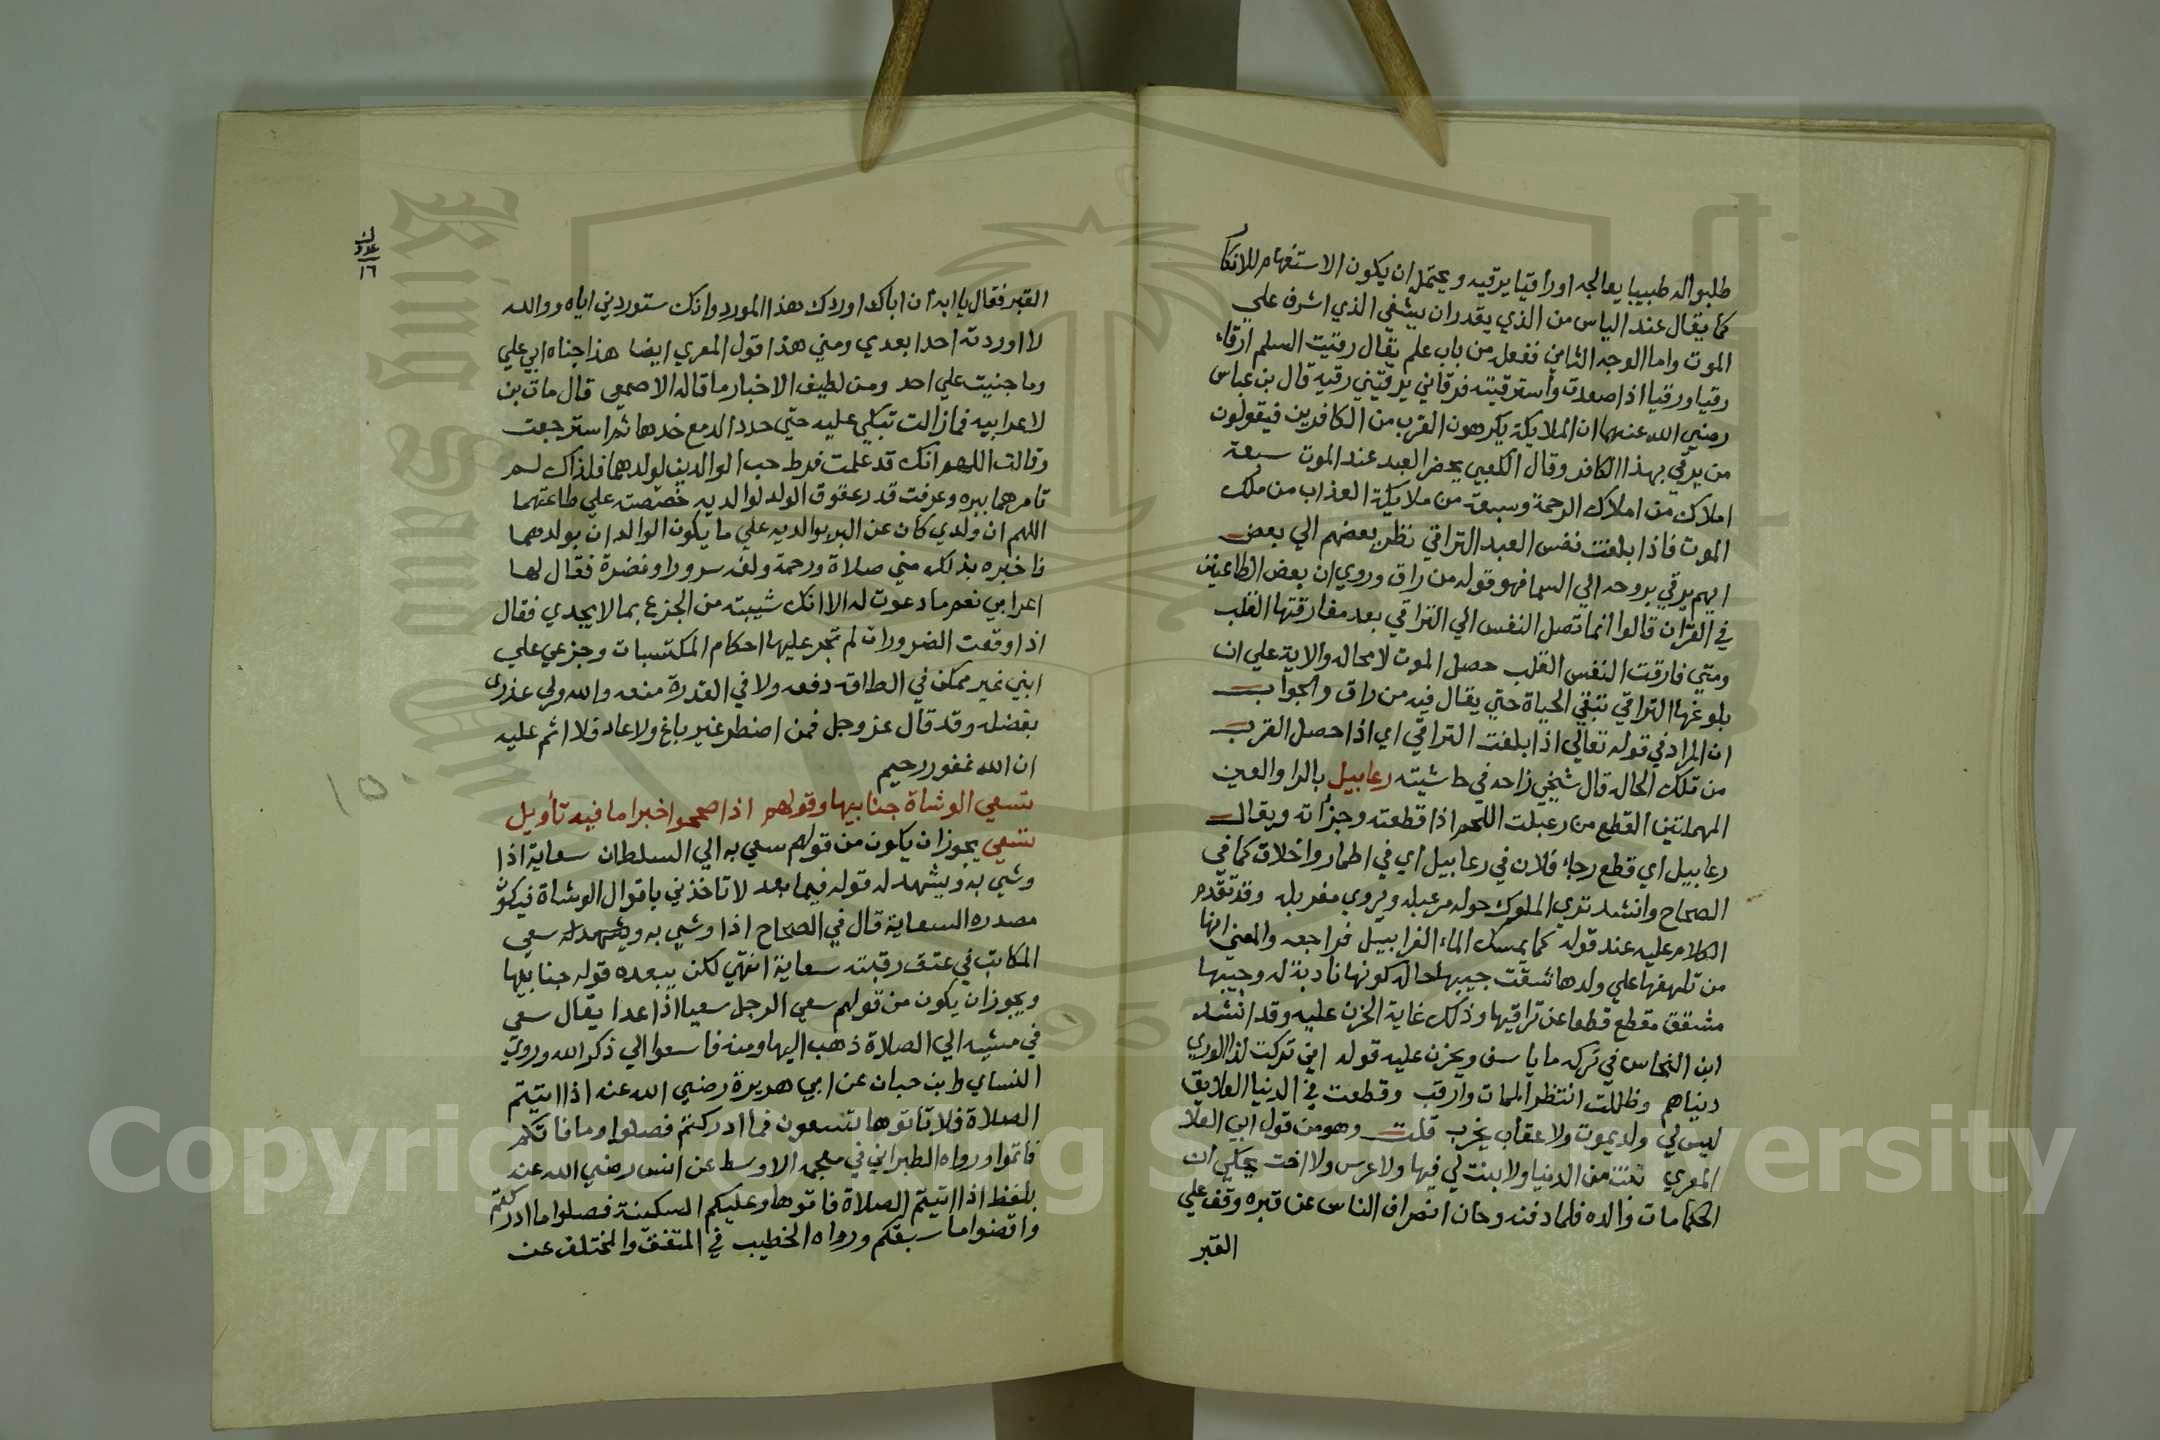 طلبوا له طبيبا يعالجه اوراقيا يرقيه ويحتمل ان يكون الاستفهام للانكار
كما يقال عند الياس من الذي يقدران يشفي الذي اشرف علي
الموت واما الوجه الثاني ففعل من باب علم يقال رقيت السلم ارقاه
رقيا ورقيا اذا صعدت واسترقيته فرقاني يرقيني رقية قال بن عباس
رضي الله عنهما ان الملايكة يكرهون القرب من الكافرين فيقولون
من يرقي بهذا الكافر وقال الكلبي يحضر العبد عند الموت سبعة
املاك من املاك الرحمة وسبعة من ملايكة العذاب من ملك
الموت فاذا بلغت نفس العبد التراقي نظر بعضهم الي بعض
ايهم يرقي بروحه الي السما فهو قوله من راق وروي ان بعض الطاعنين
في القران قالوا انما تصل النفس الي التراقي بعد مفارقتها القلب
ومتي فارقت النفس القلب حصل الموت لا محاله والاية علي ان
بلوغها التراقي تبقي الحياة حتي يقال فيه من راق والجواب
ان المراد في قوله تعالي اذا بلغت التراقي اي اذا حصل القرب
من تلك الحاله قال شيخي زاحه في حاشيته رعابيل بالرا والعين
المهملتين القطع من رعبلت اللحم اذا قطعته وجزاته ويقال
رعابيل اي قطع رجاء فلان في رعابيل اي في اطمار واخلاق كما في
الصحاح وانشد تري الملوك حوله مرعبله ويروي مغربله وقد تقدم
الكلام عليه عند قوله كما يمسك الماء الغرابيل فراجعه والمعني انها
من تلهفها علي ولدها شقت جيبها حاله كونها نادبة له وجيبها
مشقق مقطع قطعا عن تراقيها وذلك غاية الحزن عليه وقد انشد
ابن النحاس في تركه ما ياسف ويحزن عليه قوله اني تركت لذا الوري
دنياهم وظللت انتظر الممات وارقب وقطعت في الدنيا العلايق
ليس لي ولد يموت ولا عقاب يخرب قلت وهو من قول ابي العلا
المعري من الدنيا ولا بنت لي فيها ولا عرس ولا اخت يحكي ان
الحكما مات والده فلما دفنه وحان انصراف الناس عن قبره وقف علي
القبر
عدد
١٦
القبر فقال يا ابه ان اباك اوردك هذا المورد وانك ستوردني اياه ووالله
لا اوردته احدا بعدي ومني هذا قول المعري ايضا هذا جناه ابي علي
وما جنيت علي احد ومن لطيف الاخبار ما قاله الاصمعي قال مات بن
لاعرابيه فما زالت تبكي عليه حتي حدد الدمع خدها ثم استرجعت
وقالت اللهم انك قد علمت فرط حب الوالدين لولدهما فلذاك لم
تامرهما ببره وعرفت قدر عقوق الولد لوالديه خصصته علي طاعتهما
اللهم ان ولدي كان عن البر بوالديه علي ما يكون الوالدان بولدهما
فاخبره بذلك مني صلاة ورحمة ولقه سرورا ونضرة فقال لها
اعرابي نعم ما دعوت له الا انك شيبته من الجزع بما لا يجدي فقال
اذا وقعت الضرورات لم تجر عليها احكام المكتسبات وجزعي علي
ابني غير ممكن في الطاقه دفعه ولا في القدرة منعه والله ولي عذري
بفضله وقد قال عز وجل فمن اضطر غير باغ ولا عاد فلا اثم عليه
ان الله غفور رحيم
تسعي الوشاة جنابيها وقولهم اذا صححوا خبرا ما فيه تأويل
تسعي يجوزان يكون من قولهم سعي به الي السلطان سعاية اذا
وشي به ويشهد له قوله فيما بعد لا تاخذني باقوال الوشاة فيكون
مصدره السعاية قال في الصحاح اذا وشي به ويشهد له سعي
المكاتب في عتق رقبته سعاية انتهي لكن يبعده قوله جنابيها
ويجوزان يكون من قولهم سعي الرجل سعيا اذا عدا يقال سعي
في مشيه الي الصلاة ذهب اليها ومنه فاسعوا الي ذكر الله وروي
النساي وابن حبان عن ابي هريرة رضي الله عنه اذا اتيتم
الصلاة فلا تاتوها تسعون فما ادركتم فصلوا وما فاتكم
فاتموا ورواه الطبراني في معجمه الاوسط عن انس رضي الله عنه
بلفظ اذا اتيتم الصلاة فاتوها وعليكم السكينة فصلوا ما ادركتم
واقضوا ما سبقكم ورواه الخطيب في المتفق والمختلف عن
١٥٠
Copyright © King Saud University
King Saud University
1957